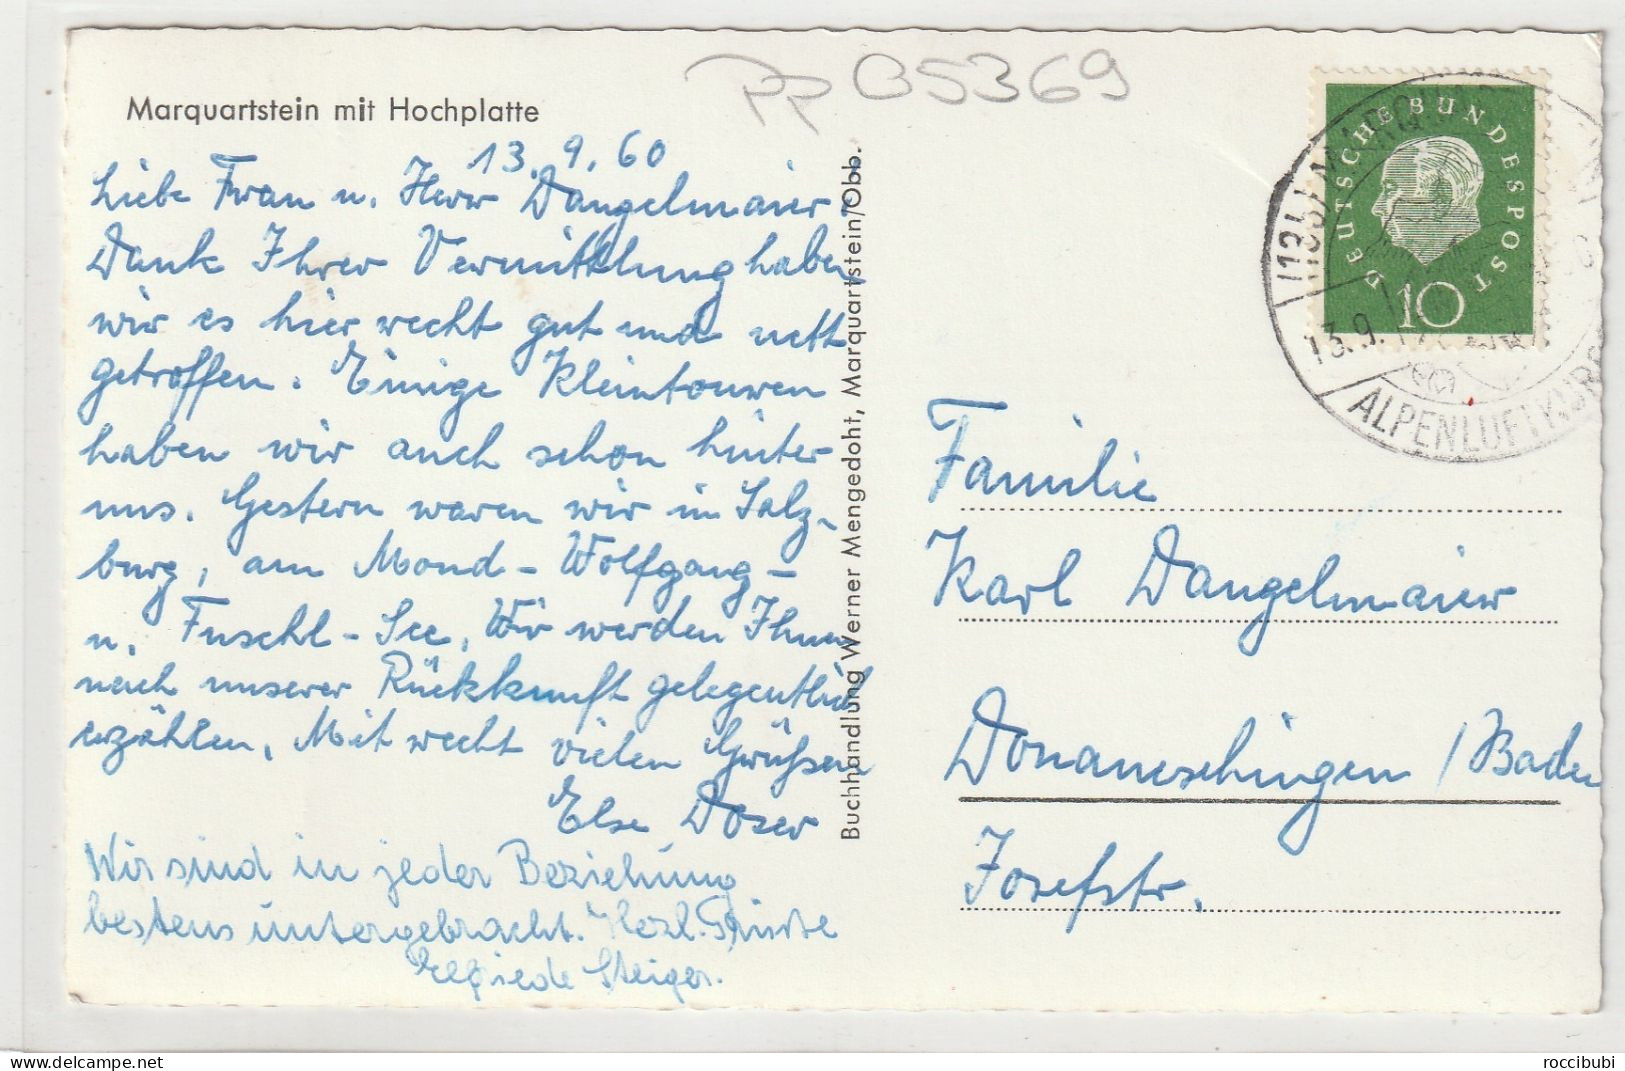 PP B5369
Marquartstein mit Hochplatte
13. 9. 60
Liebe Frau u. Herr Dangelmaier.
Dank Ihrer Vermittlung haben
wir es hier recht gut und nett
getroffen. Einige Kleintouren
haben wir auch schon hinter
uns. Gestern waren wir in Salz-
burg, am Mond- Wolfgang-
u. Fuschl-See. Wir werden Ihnen
nach unserer Rückkunft gelegentlich
erzählen. Mit recht vielen Grüßen
Else Doser
Wir sind in jeder Beziehung
bestens untergebracht. Herzl. Grüße
Elfriede Steiger.
Buchhandlung Werner Mengedoht, Marquartstein/Obb.
DEUTSCHE BUNDESPOST
10
(13b) MARQUARTSTEIN
13.9.
ALPENLUFTKUR
Familie
Karl Dangelmaier
Donaueschingen / Baden
Josefstr.
roccibubi